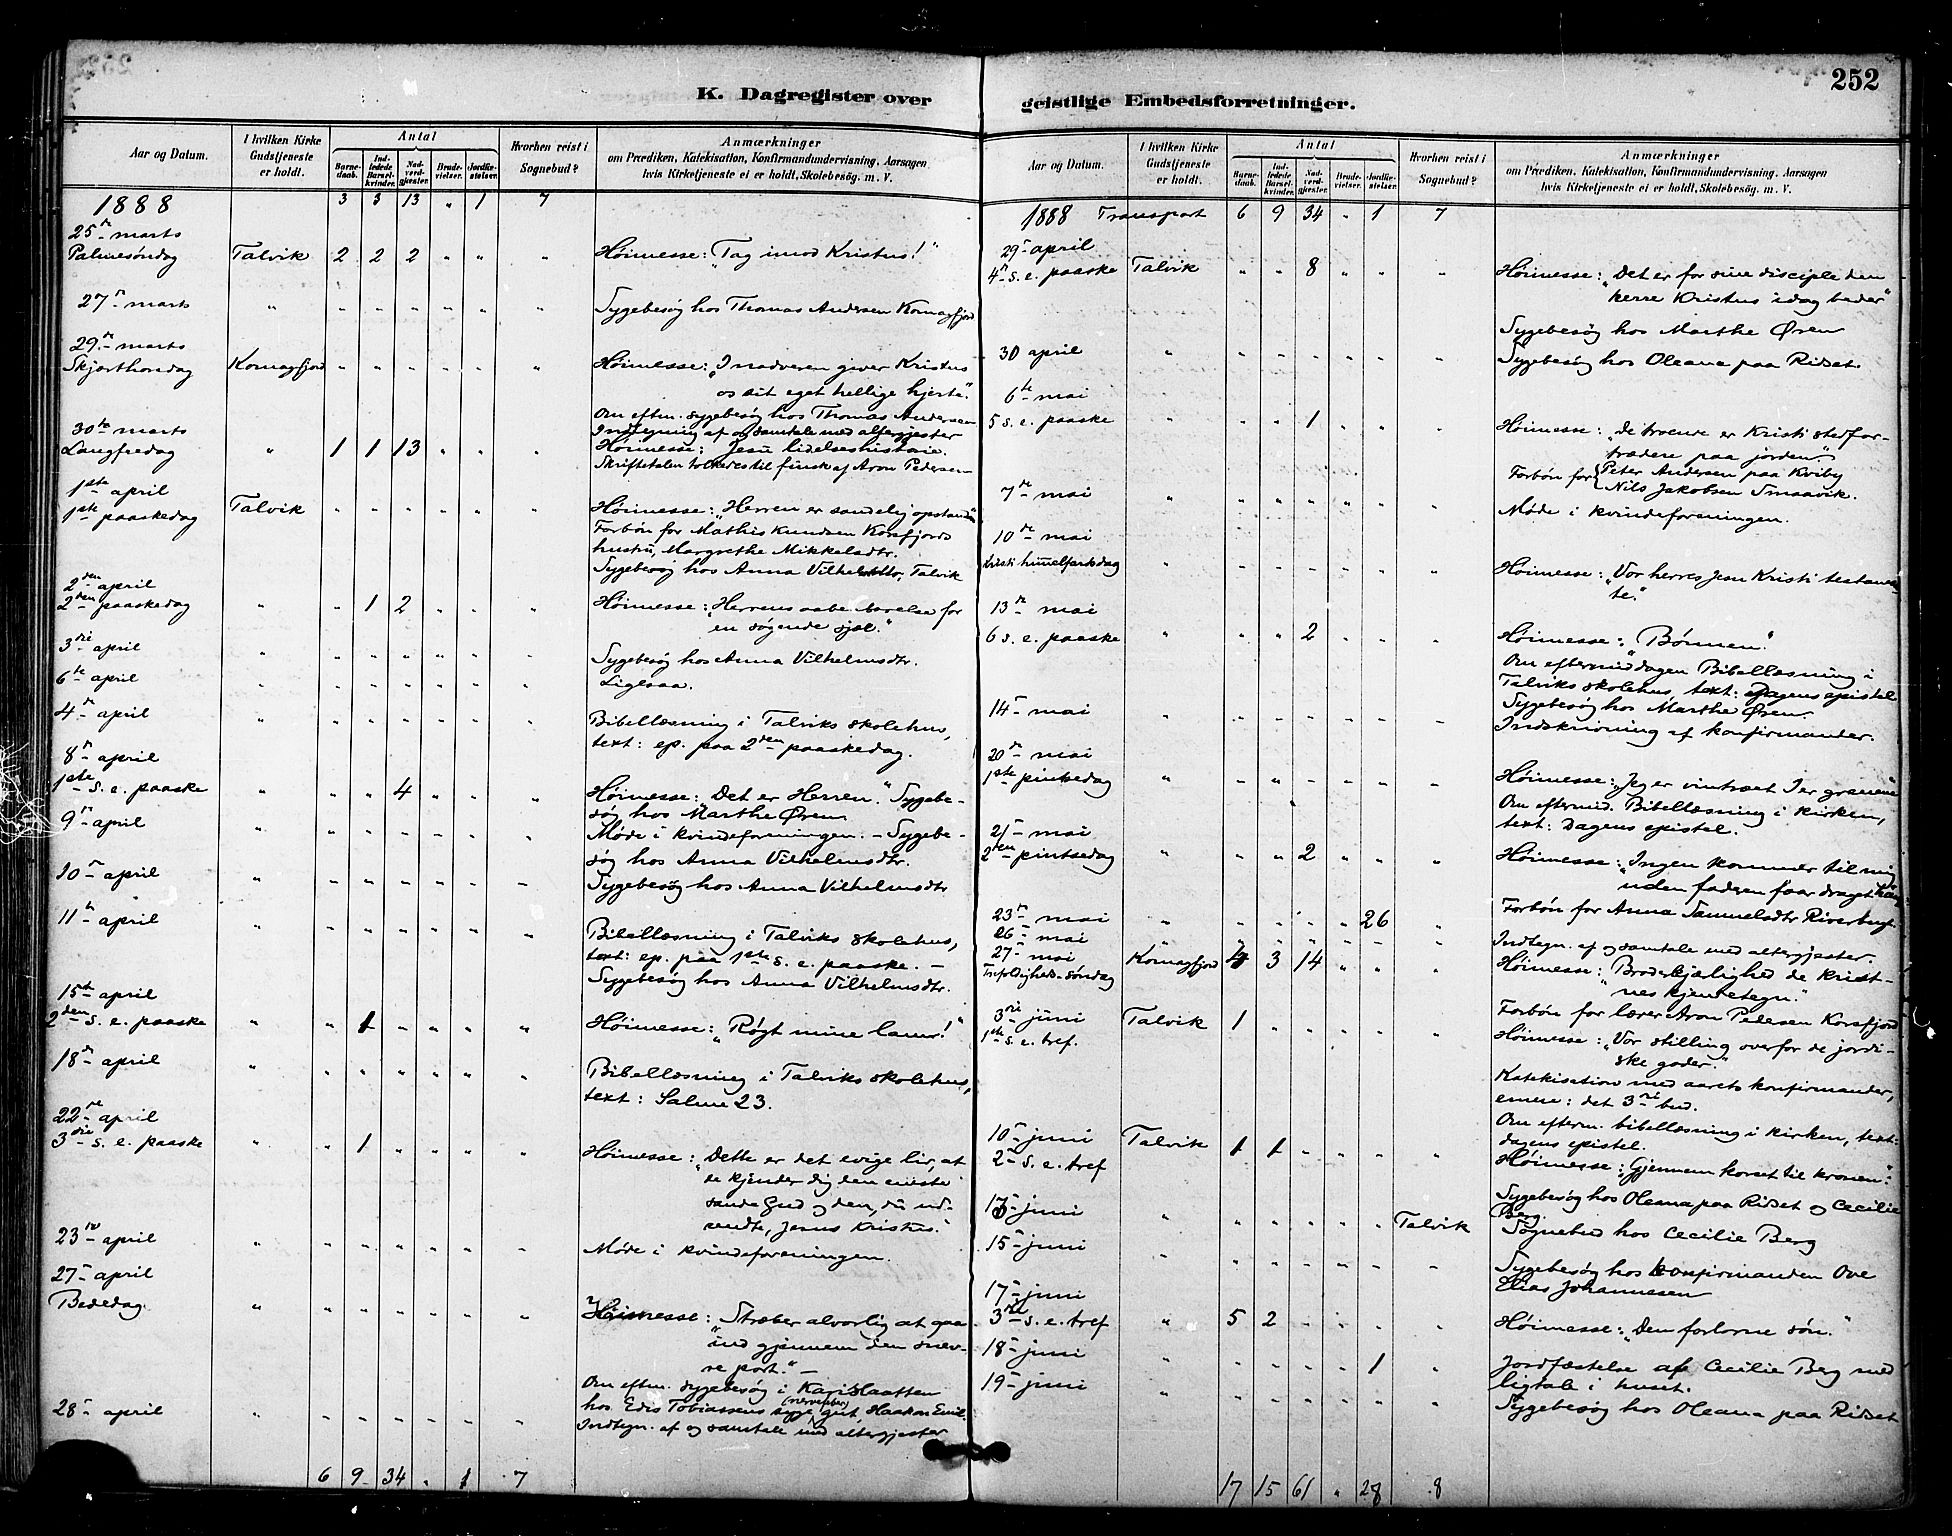 252
K. Dagregister over
Aar og Datum.
I hvilken Kirke Gudstjeneste er holdt.
Antal
Barnedaab.
Indledede Barselkvinder.
Nadverdgjester.
Brudevielser.
Jordfæstelser.
Hvorhen reist i Sognebud?
Anmærkninger
om Prædiken, Katekisation, Konfirmandundervisning, Aarsagen
hvis Kirketjeneste ei er holdt, Skolebesøg. m. V.
1888 3 3 13 " 1 7
25de marts
Palmesøndag Talvik 2 2 2 " " " Høimesse: "Tag imod Kristus!"
27de marts " " " " " " " Sygebesøg hos Thomas Andersen Komagfjord
29de marts
Skjærthorsdag Komagfjord " " " " " " Høimesse: "I nadveren giver Kristus
os sit eget hellige hjerte."
Om eftm. sygebesøg hos Thomas Andersen
30te marts Indtegning af og samtale med altergjester
Langfredag " 1 1 13 " " " Høimesse: Jesu lidelseshistorie.
Skriftetalen tolkedes til finsk af Aron Pedersen
1ste april
1ste paaskedag Talvik " " " " " " Høimesse: "Herren er sandelig opstanden"
Forbøn for Mathis Knudsen Korsfjords
hustru, Margrethe Mikkelsdtr.
Sygebesøg hos Anna, Talvik
2den april
2den paaskedag " " 1 2 " " " Høimesse: "Herrens aabenbarelse for
en søgende sjæl."
3die april " " " " " " " Sygebesøg hos Anna Vilhelmsdtr.
6te april " " " " " " " Ligesaa.
4de april " " " " " " " Bibellæsning i Talviks skolehus,
text: ep. paa 2den paaskedag.
8de april
1ste s. e. paaske " " " 4 " " " Høimesse: "Det er Herren." Sygebe-
søg hos Marthe Øren
9de april " " " " " " " Møde i kvindeforeningen. - Sygebe-
søg hos Anna Vilhelmsdtr.
10de april " " " " " " " Sygebesøg hos Anna Vilhelmsdtr
11te april " " " " " " " Bibellæsning i Talviks skolehus,
text: ep. paa 1ste s. e. paaske. -
Sygebesøg hos Anna Vilhelmsdtr.
15de april
2den s. e. paaske " " 1 " " " " Høimesse: "Røgt mine lam!"
18de april " " " " " " " Bibellæsning i Talviks skolehus,
text: Salme 23.
22de april
3die s. e. paaske " " 1 " " " " Høimesse: "Dette er det evige liv, at
de kjender dig den eneste
sande Gud og den, du ud-
sendte, Jesus Kristus."
23de april " " " " " " " Møde i kvindeforeningen.
27de april
Bededag " " " " " " " Høimesse: "Stræber alvorlig at gaa
ind gjennem den snæv-
re port." -
Om eftm. sygebesøg i Karislaatten
28de april " " " " " " " hos Edis Tobiassens syge gut, Haakon Emil.
Indtegn. af og samtale med altergjester
6 9 34 " 1 7
geistlige Embedsforretninger.
Aar og Datum.
I hvilken Kirke Gudstjeneste er holdt.
Antal
Barnedaab.
Indledede Barselkvinder.
Nadverdgjester.
Brudevielser.
Jordfæstelser.
Hvorhen reist i Sognebud?
Anmærkninger
om Prædiken, Katekisation, Konfirmandundervisning. Aarsagen
hvis Kirketjeneste ei er holdt, Skolebesøg. m. V.
1888 Transport 6 9 34 " 1 7
29de april
4de s. e. paaske Talvik " " 8 " " " Høimesse: "Det er for sine disciple den
herre Kristus idag beder"
Sygebesøg hos Marthe Øren
30 april " " " " " " " Sygebesøg hos Oleana paa Ridset.
6te mai
5 s. e. paaske " " " 1 " " " Høimesse: "De troende er Kristi stedfor-
trædere paa jorden."
Forbøn for {Peter Andersen paa Kviby
Nils Jakobsen Smaavik.
7de mai " " " " " " " Møde i kvindeforeningen.
10de mai
Kristi himmelfartsdag " " " " " " " Høimesse: "Vor herres Jesu Kristi testamen-
te."
13de mai
6 s. e. paaske " " " 2 " " " Høimesse: "Bønnen".
Om eftermiddagen Bibellæsning i
Talviks skolehus, text: Dagens epistel
Sygebesøg hos Marthe Øren.
14de mai " " " " " " " Indskrivning af konfirmander.
20de mai
1ste pintsedag " " " " " " " Høimesse: "Jeg er vintræet I er grenene"
Om eftermid. Bibellæsning i kirken,
text: Dagens epistel.
21de mai
2den pintsedag " " " 2 " " " Høimesse: "Ingen kommer til mig
uden faderen faar draget ham"
Forbøn for Anna Samuelsdtr
23de mai " " " " " 26 "
26de mai " " " " " " " Indtegn. af og samtale med altergjester.
27de mai
Trefoldigheds-søndag Komagfjord 4 3 14 " " " Høimesse: "Broderkjærlighed de krist-
nes kjendetegn."
Forbøn for lærer Aron Pedersen Korsfjord
3die juni
1ste s. e. tref. Talvik 1 " " " " " Høimesse: "Vor stilling overfor de jordi-
ske goder."
Katekisation med aarets konfirmander,
emne: det 3die bud.
Om efterm. bibellæsning i kirken, text:
dagens epistel.
10de juni
2de s. e. tref Talvik 1 1 " " " " Høimesse: "Gjennem korset til kronen".
Sygebesøg hos Oleana paa Ridset og Cecilie
Berg.
13de juni " " " " " " Talvik Sognebud hos Cecilie Berg
15de juni " " " " " " " Sygebesøg hos konfirmanden Ove
Elias Johannesen
17de juni
3die s. e. tref " 5 2 " " " " Høimesse: "Den forlorne søn."
18de juni " " " " " 1 " Jordfæstelse af Cecilie Berg med
ligtale i huset.
19de juni " " " " " " " Sygebesøg hos Oleana paa Ridset
17 15 61 " 28 8